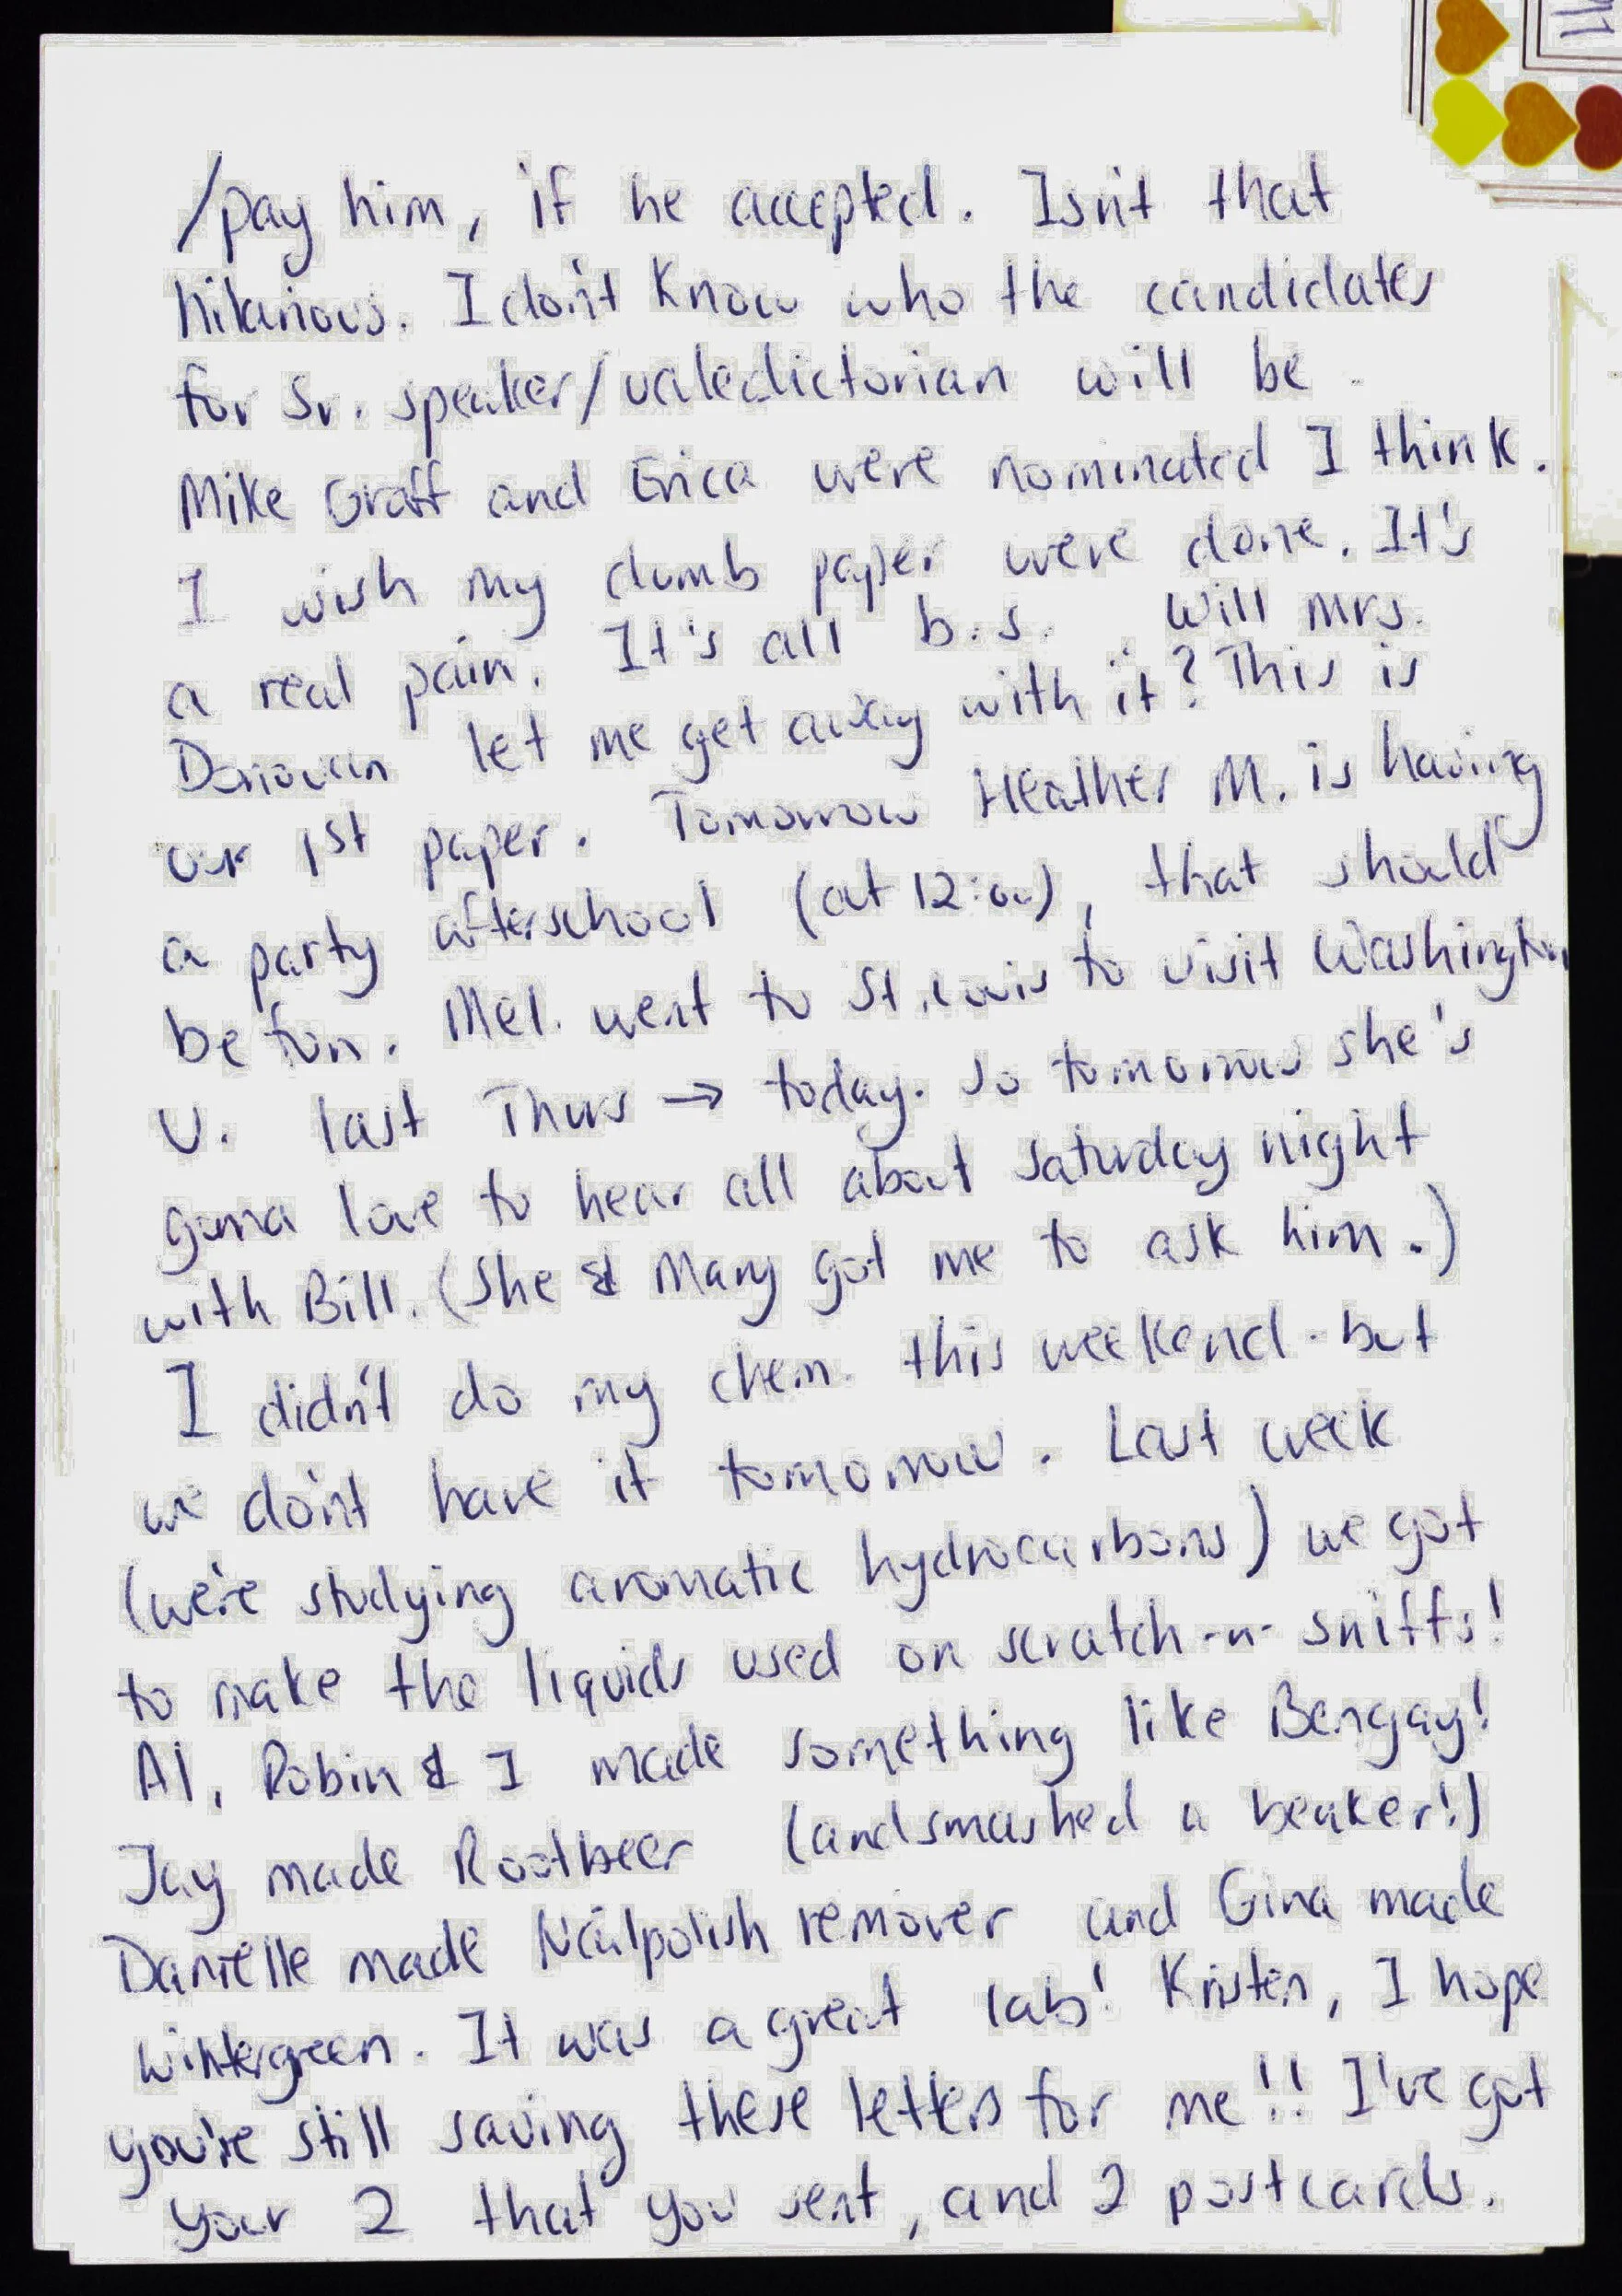 /pay him, if he accepted. Isn't that
hilarious. I don't know who the candidates
for Sr. speaker/valedictorian will be.
Mike Graff and Erica were nominated I think.
I wish my dumb paper were done. It's
a real pain. It's all b.s. Will Mrs.
Donovan let me get away with it? This is
our 1st paper. Tomorrow Heather M. is having
a party afterschool (at 12:00), that should
be fun. Mel. went to St. Louis to visit Washington
U. last Thurs → today. So tomorrow she's
gonna love to hear all about Saturday night
with Bill. (She & Mary got me to ask him.)
I didn't do my chem. this weekend - but
we don't have it tomorrow. Last week
(we're studying aromatic hydrocarbons) we got
to make the liquids used on scratch-n-sniffs!
Al, Robin & I made something like Bengay!
Jay made Rootbeer (and smashed a beaker!)
Danielle made Nailpolish remover and Gina made
wintergreen. It was a great lab! Kristen, I hope
you're still saving these letters for me!! I've got
your 2 that you sent, and 2 postcards.